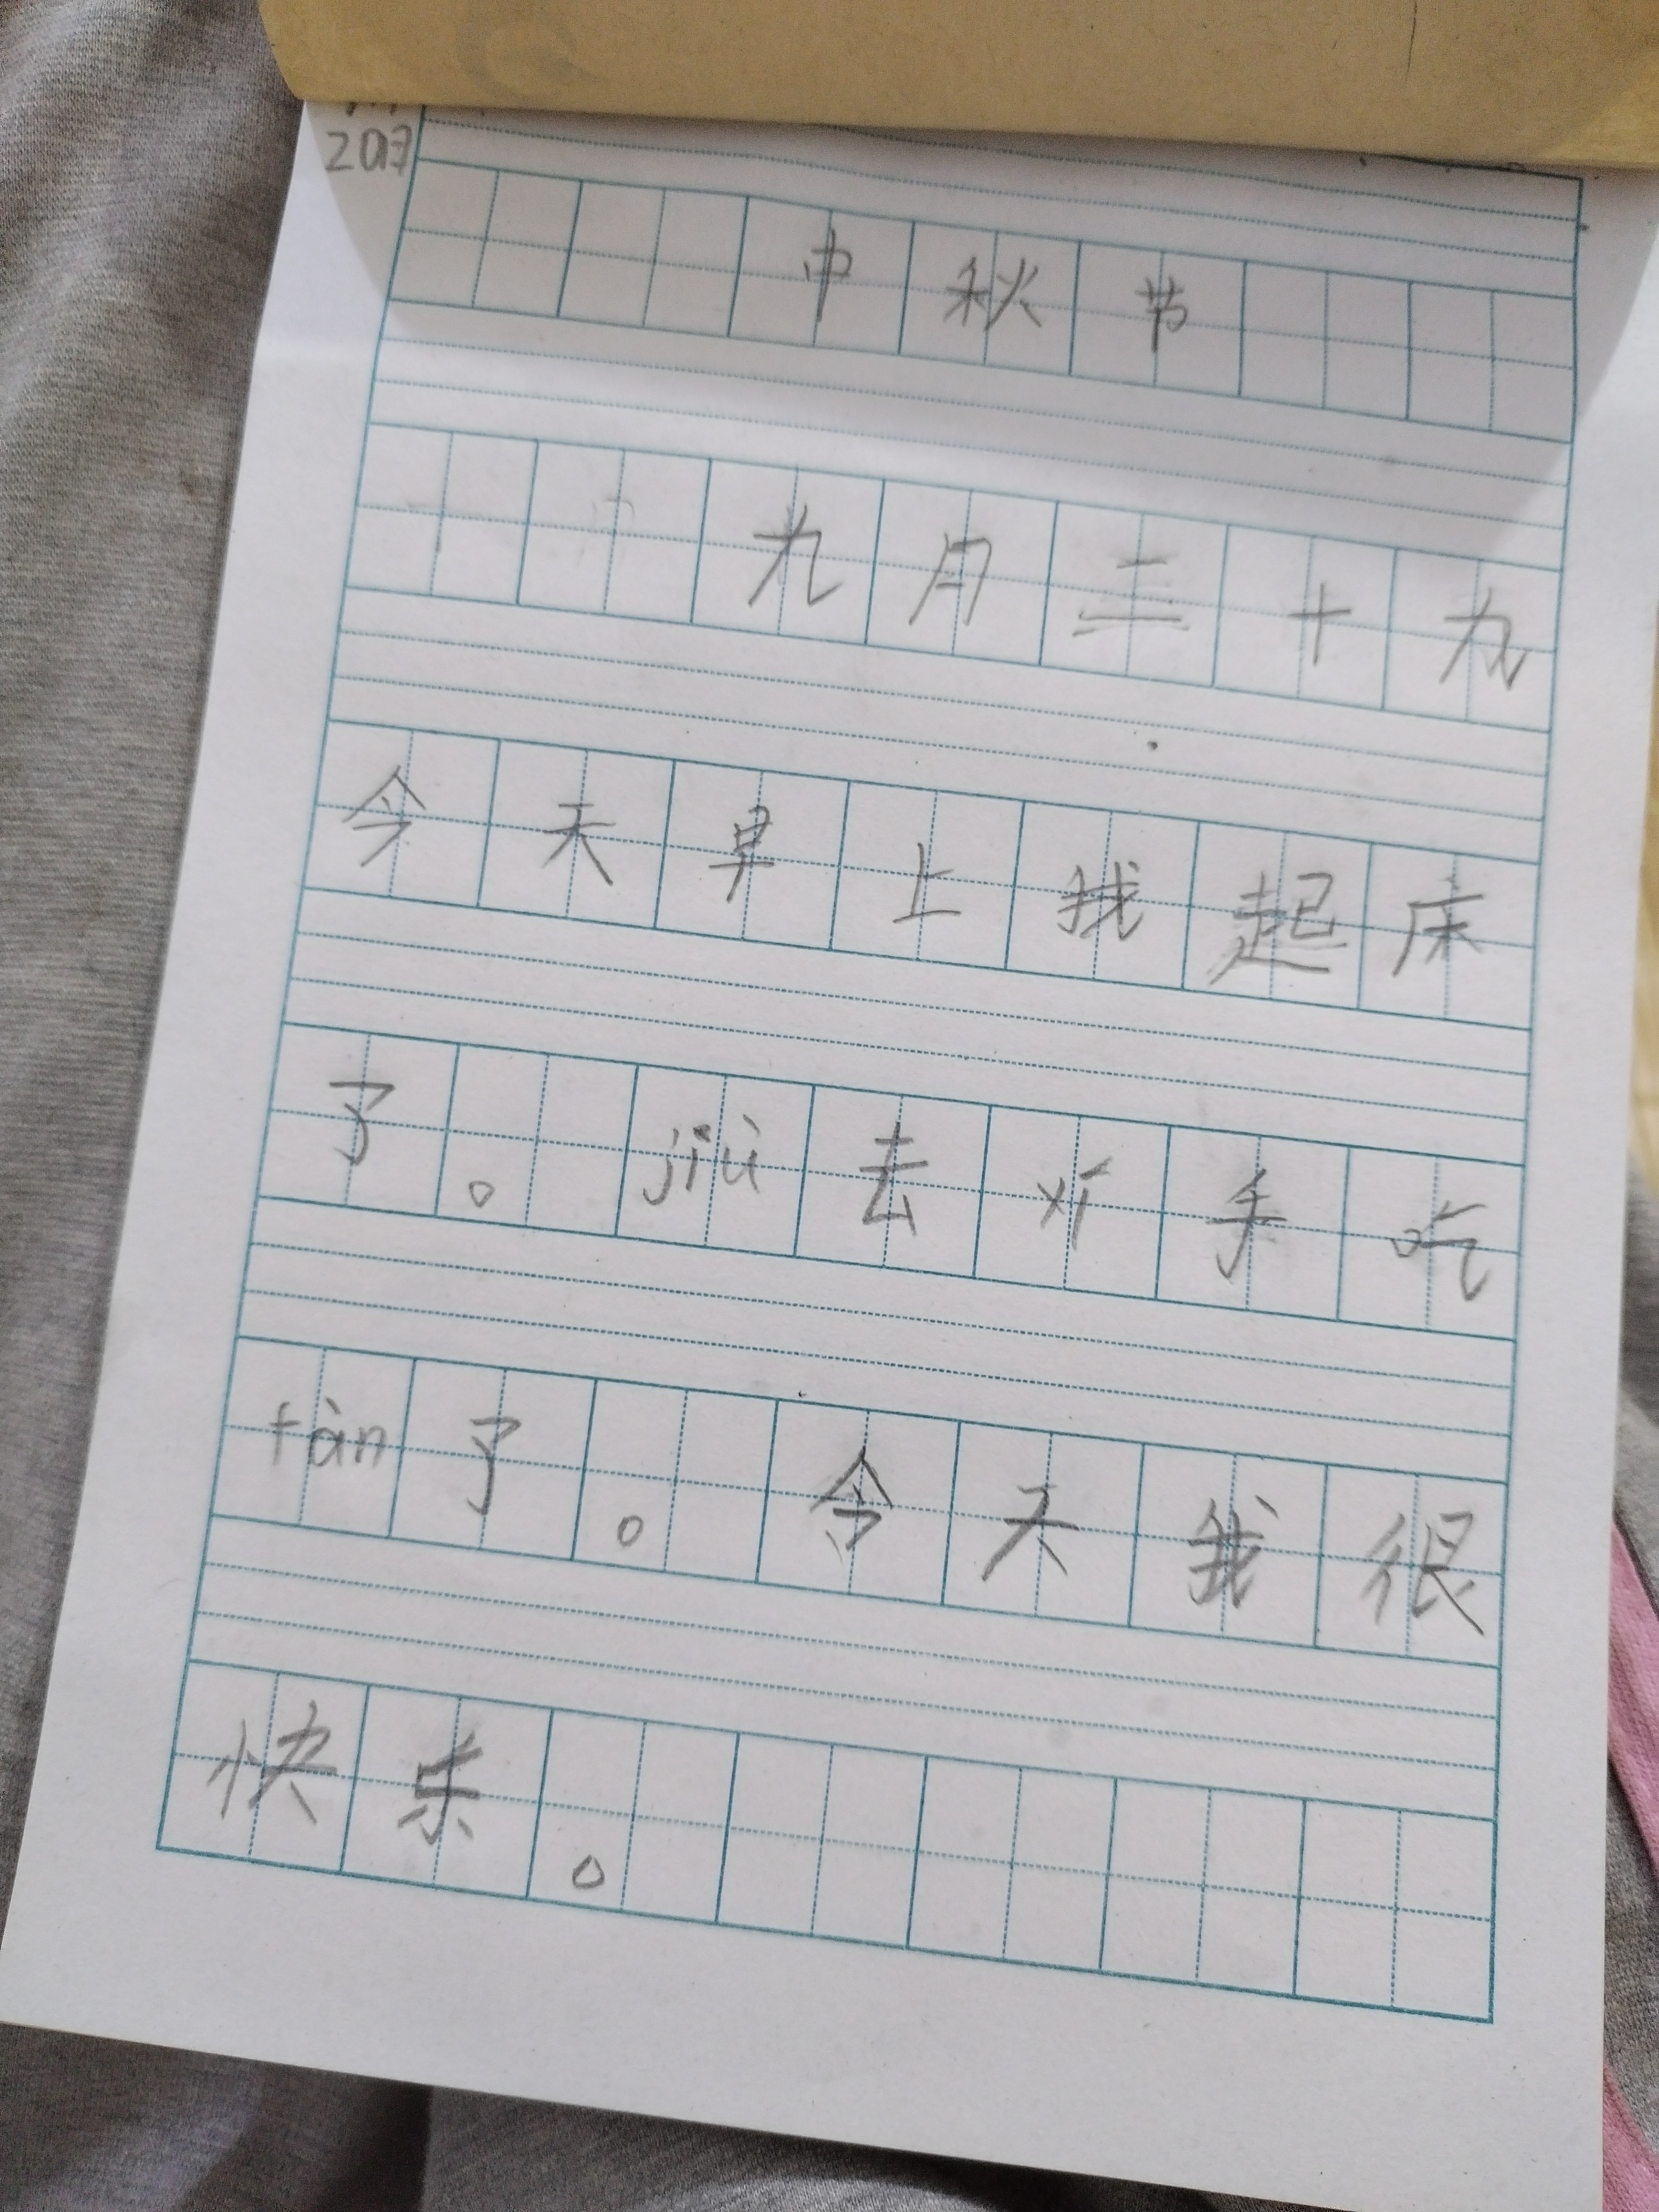 中秋节
九月二十九
今天早上我起床
了。jiù去xǐ手吃
fàn了。今天我很
快乐。